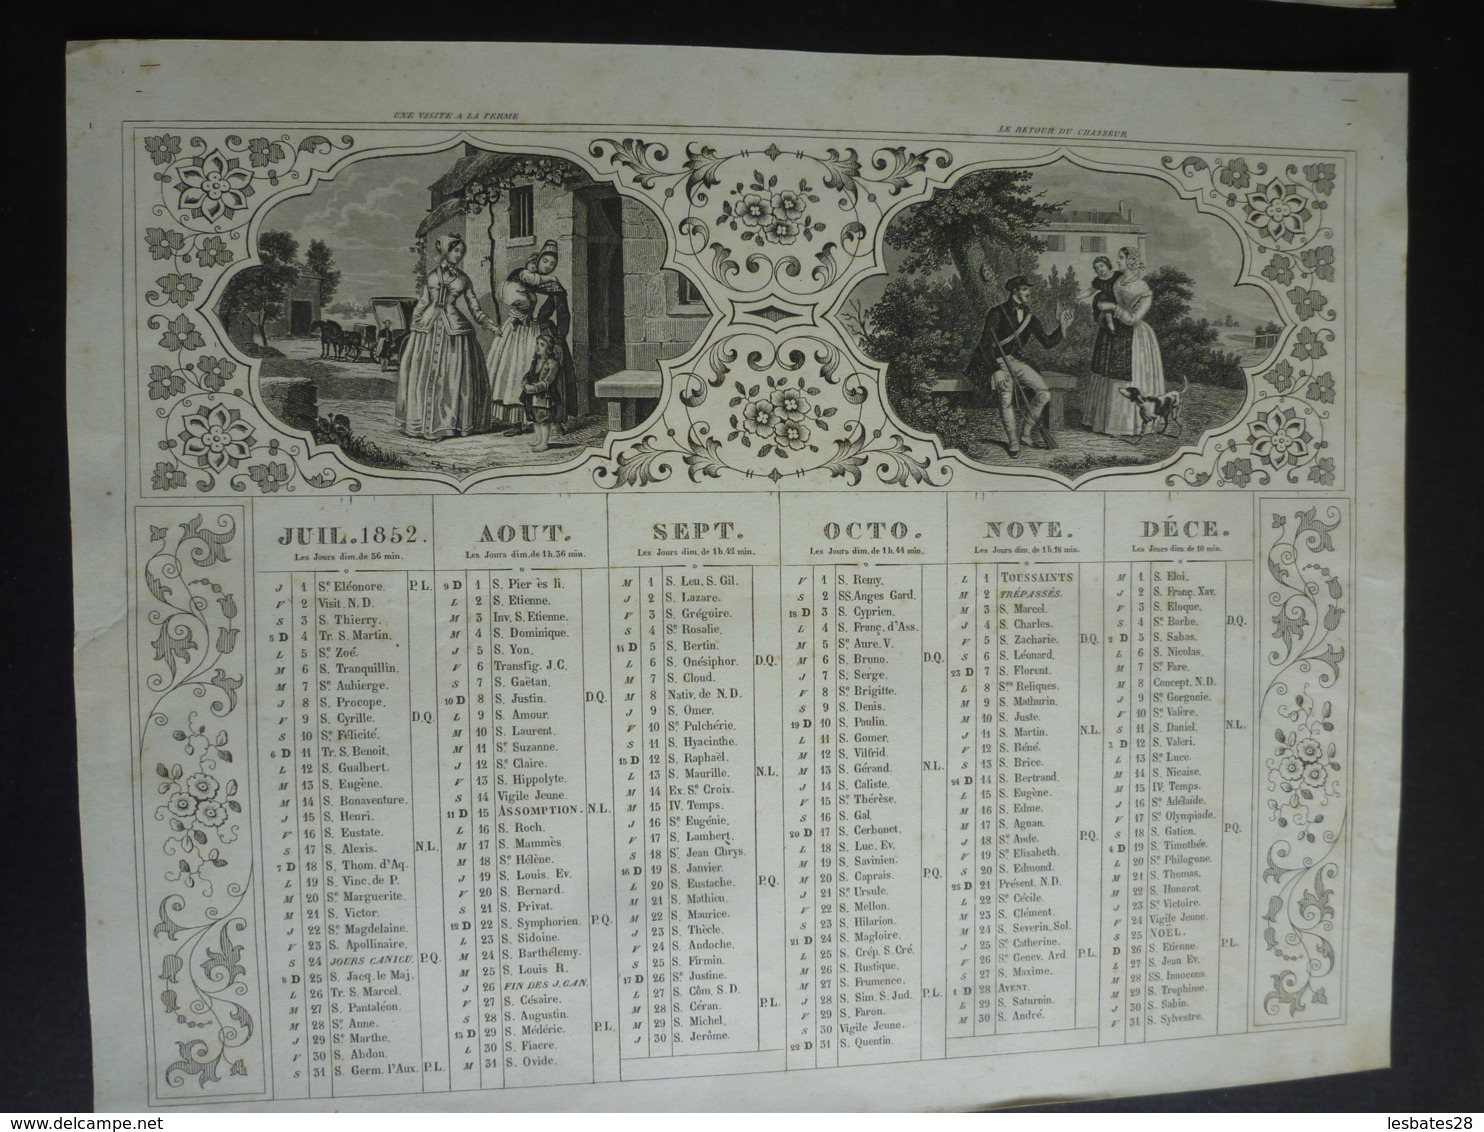 UNE VISITE A LA FERME
LE RETOUR DU CHASSEUR
JUIL. 1852.
Les Jours dim. de 56 min.
J 1 Se Eléonore. P.L.
V 2 Visit. N.D.
S 3 S. Thierry.
5 D 4 Tr. S. Martin.
L 5 Se Zoé.
M 6 S. Tranquillin.
M 7 Se Aubierge.
J 8 S. Procope.
V 9 S. Cyrille. D.Q.
S 10 Se Félicité.
6 D 11 Tr. S. Benoit.
L 12 S. Gualbert.
M 13 S. Eugène.
M 14 S. Bonaventure.
J 15 S. Henri.
V 16 S. Eustate.
S 17 S. Alexis. N.L.
7 D 18 S. Thom. d'Aq.
L 19 S. Vinc. de P.
M 20 Se Marguerite.
M 21 S. Victor.
J 22 Se Magdelaine.
V 23 S. Apollinaire.
S 24 JOURS CANICU. P.Q.
8 D 25 S. Jacq. le Maj.
L 26 Tr. S. Marcel.
M 27 S. Pantaléon.
M 28 Se Anne.
J 29 Se Marthe.
V 30 S. Abdon.
S 31 S. Germ. l'Aux. P.L.
AOUT.
Les Jours dim. de 1 h. 36 min.
9 D 1 S. Pier ès li.
L 2 S. Etienne.
M 3 Inv. S. Etienne.
M 4 S. Dominique.
J 5 S. Yon.
V 6 Transfig. J.C.
S 7 S. Gaëtan.
10 D 8 S. Justin. D.Q.
L 9 S. Amour.
M 10 S. Laurent.
M 11 Se Suzanne.
J 12 Se Claire.
V 13 S. Hippolyte.
S 14 Vigile Jeune.
11 D 15 ASSOMPTION. N.L.
L 16 S. Roch.
M 17 S. Mammès.
M 18 Se Hélène.
J 19 S. Louis. Ev.
V 20 S. Bernard.
S 21 S. Privat.
12 D 22 S. Symphorien. P.Q.
L 23 S. Sidoine.
M 24 S. Barthélemy.
M 25 S. Louis R.
J 26 FIN DES J. CAN.
V 27 S. Césaire.
S 28 S. Augustin.
13 D 29 S. Médéric. P.L.
L 30 S. Fiacre.
M 31 S. Ovide.
SEPT.
Les Jours dim. de 1 h. 42 min.
M 1 S. Leu. S. Gil.
J 2 S. Lazare.
V 3 S. Grégoire.
S 4 Se Rosalie.
14 D 5 S. Bertin.
L 6 S. Onésiphor. D.Q.
M 7 S. Cloud.
M 8 Nativ. de N.D.
J 9 S. Omer.
V 10 Se Pulchérie.
S 11 S. Hyacinthe.
15 D 12 S. Raphaël.
L 13 S. Maurille. N.L.
M 14 Ex. Se Croix.
M 15 IV. Temps.
J 16 Se Eugénie.
V 17 S. Lambert.
S 18 S. Jean Chrys.
16 D 19 S. Janvier.
L 20 S. Eustache. P.Q.
M 21 S. Mathieu.
M 22 S. Maurice.
J 23 S. Thècle.
V 24 S. Andoche.
S 25 S. Firmin.
17 D 26 Se Justine.
L 27 S. Côm. S. D.
M 28 S. Céran. P.L.
M 29 S. Michel.
J 30 S. Jerôme.
OCTO.
Les Jours dim. de 1 h. 44 min.
V 1 S. Remy.
S 2 SS. Anges Gard.
18 D 3 S. Cyprien.
L 4 S. Franç. d'Ass.
M 5 Se Aure. V.
M 6 S. Bruno. D.Q.
J 7 S. Serge.
V 8 Se Brigitte.
S 9 S. Denis.
19 D 10 S. Paulin.
L 11 S. Gomer.
M 12 S. Vilfrid.
M 13 S. Gérand. N.L.
J 14 S. Caliste.
V 15 Se Thérèse.
S 16 S. Gal.
20 D 17 S. Cerbonet.
L 18 S. Luc. Ev.
M 19 S. Savinien.
M 20 S. Caprais. P.Q.
J 21 Se Ursule.
V 22 S. Mellon.
S 23 S. Hilarion.
21 D 24 S. Magloire.
L 25 S. Crép. S. Cré.
M 26 S. Rustique.
M 27 S. Frumence.
J 28 S. Sim. S. Jud. P.L.
V 29 S. Faron.
S 30 Vigile Jeune.
22 D 31 S. Quentin.
NOVE.
Les Jours dim. de 1 h. 18 min.
L 1 TOUSSAINTS
M 2 TRÉPASSÉS.
M 3 S. Marcel.
J 4 S. Charles.
V 5 S. Zacharie. D.Q.
S 6 S. Léonard.
23 D 7 S. Florent.
L 8 Ses Reliques.
M 9 S. Mathurin.
M 10 S. Juste.
J 11 S. Martin. N.L.
V 12 S. Réné.
S 13 S. Brice.
24 D 14 S. Bertrand.
L 15 S. Eugène.
M 16 S. Edme.
M 17 S. Agnan.
J 18 Se Aude. P.Q.
V 19 Se Elisabeth.
S 20 S. Edmond.
25 D 21 Présent. N.D.
L 22 Se Cécile.
M 23 S. Clément.
M 24 S. Severin. Sol.
J 25 Se Catherine.
V 26 Se Genev. Ard. P.L.
S 27 S. Maxime.
1 D 28 AVENT.
L 29 S. Saturnin.
M 30 S. André.
DÉCE.
Les Jours dim. de 20 min.
M 1 S. Eloi.
J 2 S. Franç. Xav.
V 3 S. Eloque.
S 4 Se Barbe. D.Q.
2 D 5 S. Sabas.
L 6 S. Nicolas.
M 7 Se Fare.
M 8 Concept. N.D.
J 9 Se Gorgonie.
V 10 Se Valère.
S 11 S. Daniel. N.L.
3 D 12 S. Valeri.
L 13 Se Luce.
M 14 S. Nicaise.
M 15 IV. Temps.
J 16 Se Adélaïde.
V 17 Se Olympiade.
S 18 S. Gatien. P.Q.
4 D 19 S. Timothée.
L 20 Se Philogone.
M 21 S. Thomas.
M 22 S. Honorat.
J 23 Se Victoire.
V 24 Vigile Jeune.
S 25 NOËL.
D 26 S. Etienne. P.L.
L 27 S. Jean Ev.
M 28 SS. Innocens.
M 29 S. Trophime.
J 30 S. Sabin.
V 31 S. Sylvestre.
www.delcampe.net
lesbates28